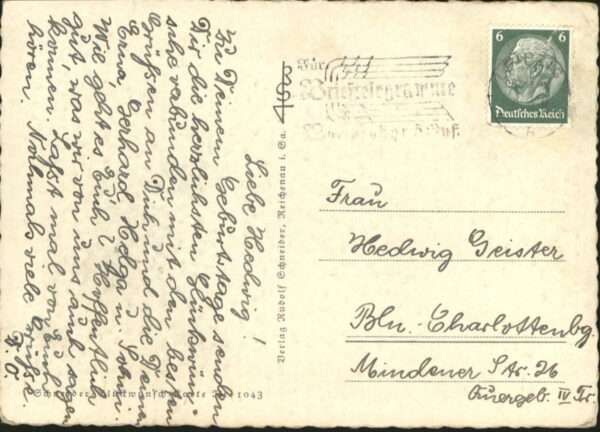 Liebe Hedwig!
Zu Deinem Geburtstage senden
Dir die herzlichsten Glückwün-
sche verbunden mit den besten
Grüßen an Dich und die Deinen
Erna, Gerhard, Helga u.
Wie geht es Euch? Hoffentlich
gut, was wir von uns auch sagen
können. Laßt mal von Euch
hören. Nochmals viele Grüße.
D. O.
Verlag Rudolf Schneider, Reichenau i. Sa.
1043
6 6
Deutsches Reich
Für
Brieftelegramme
Frau
Hedwig Geister
Bln.-Charlottenbg
Mindener Str. 26
Quergeb. IV Tr.